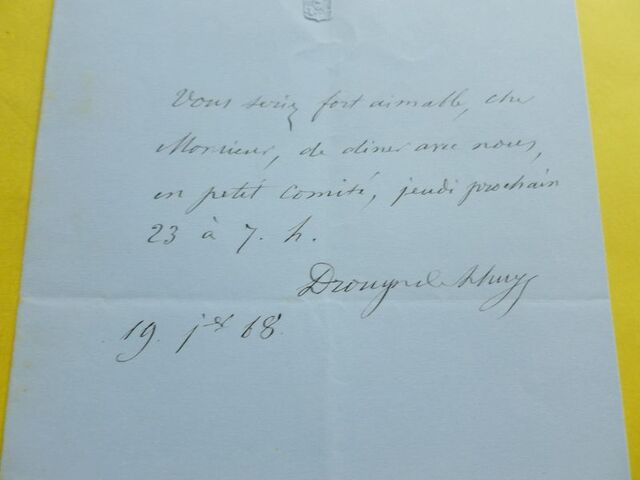 Vous seriez fort aimable, cher
Monsieur, de diner avec nous,
en petit comité, jeudi prochain
23 à 7. h.
Drouyn de Lhuys
19. jer 68.